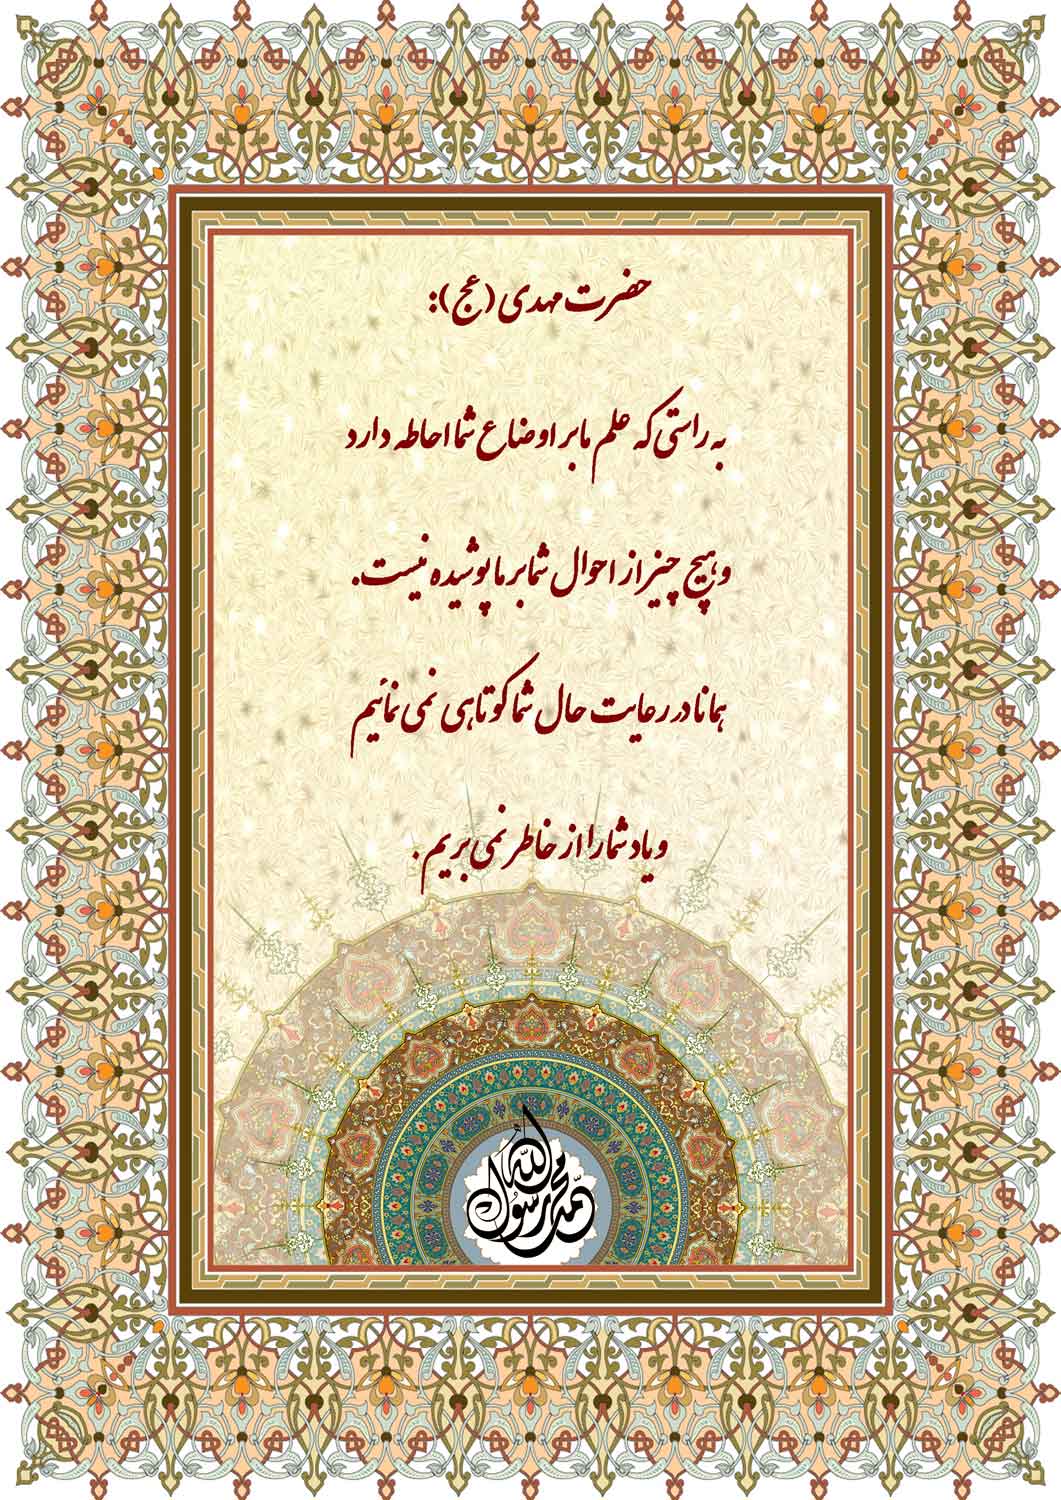 حضرت مهدی (عج):
به راستی که علم ما بر اوضاع شما احاطه دارد
و هیچ چیز از احوال شما بر ما پوشیده نیست.
همانا در رعایت حال شما کوتاهی نمی نمائیم
و یاد شما را از خاطر نمی بریم.
محمد رسول الله